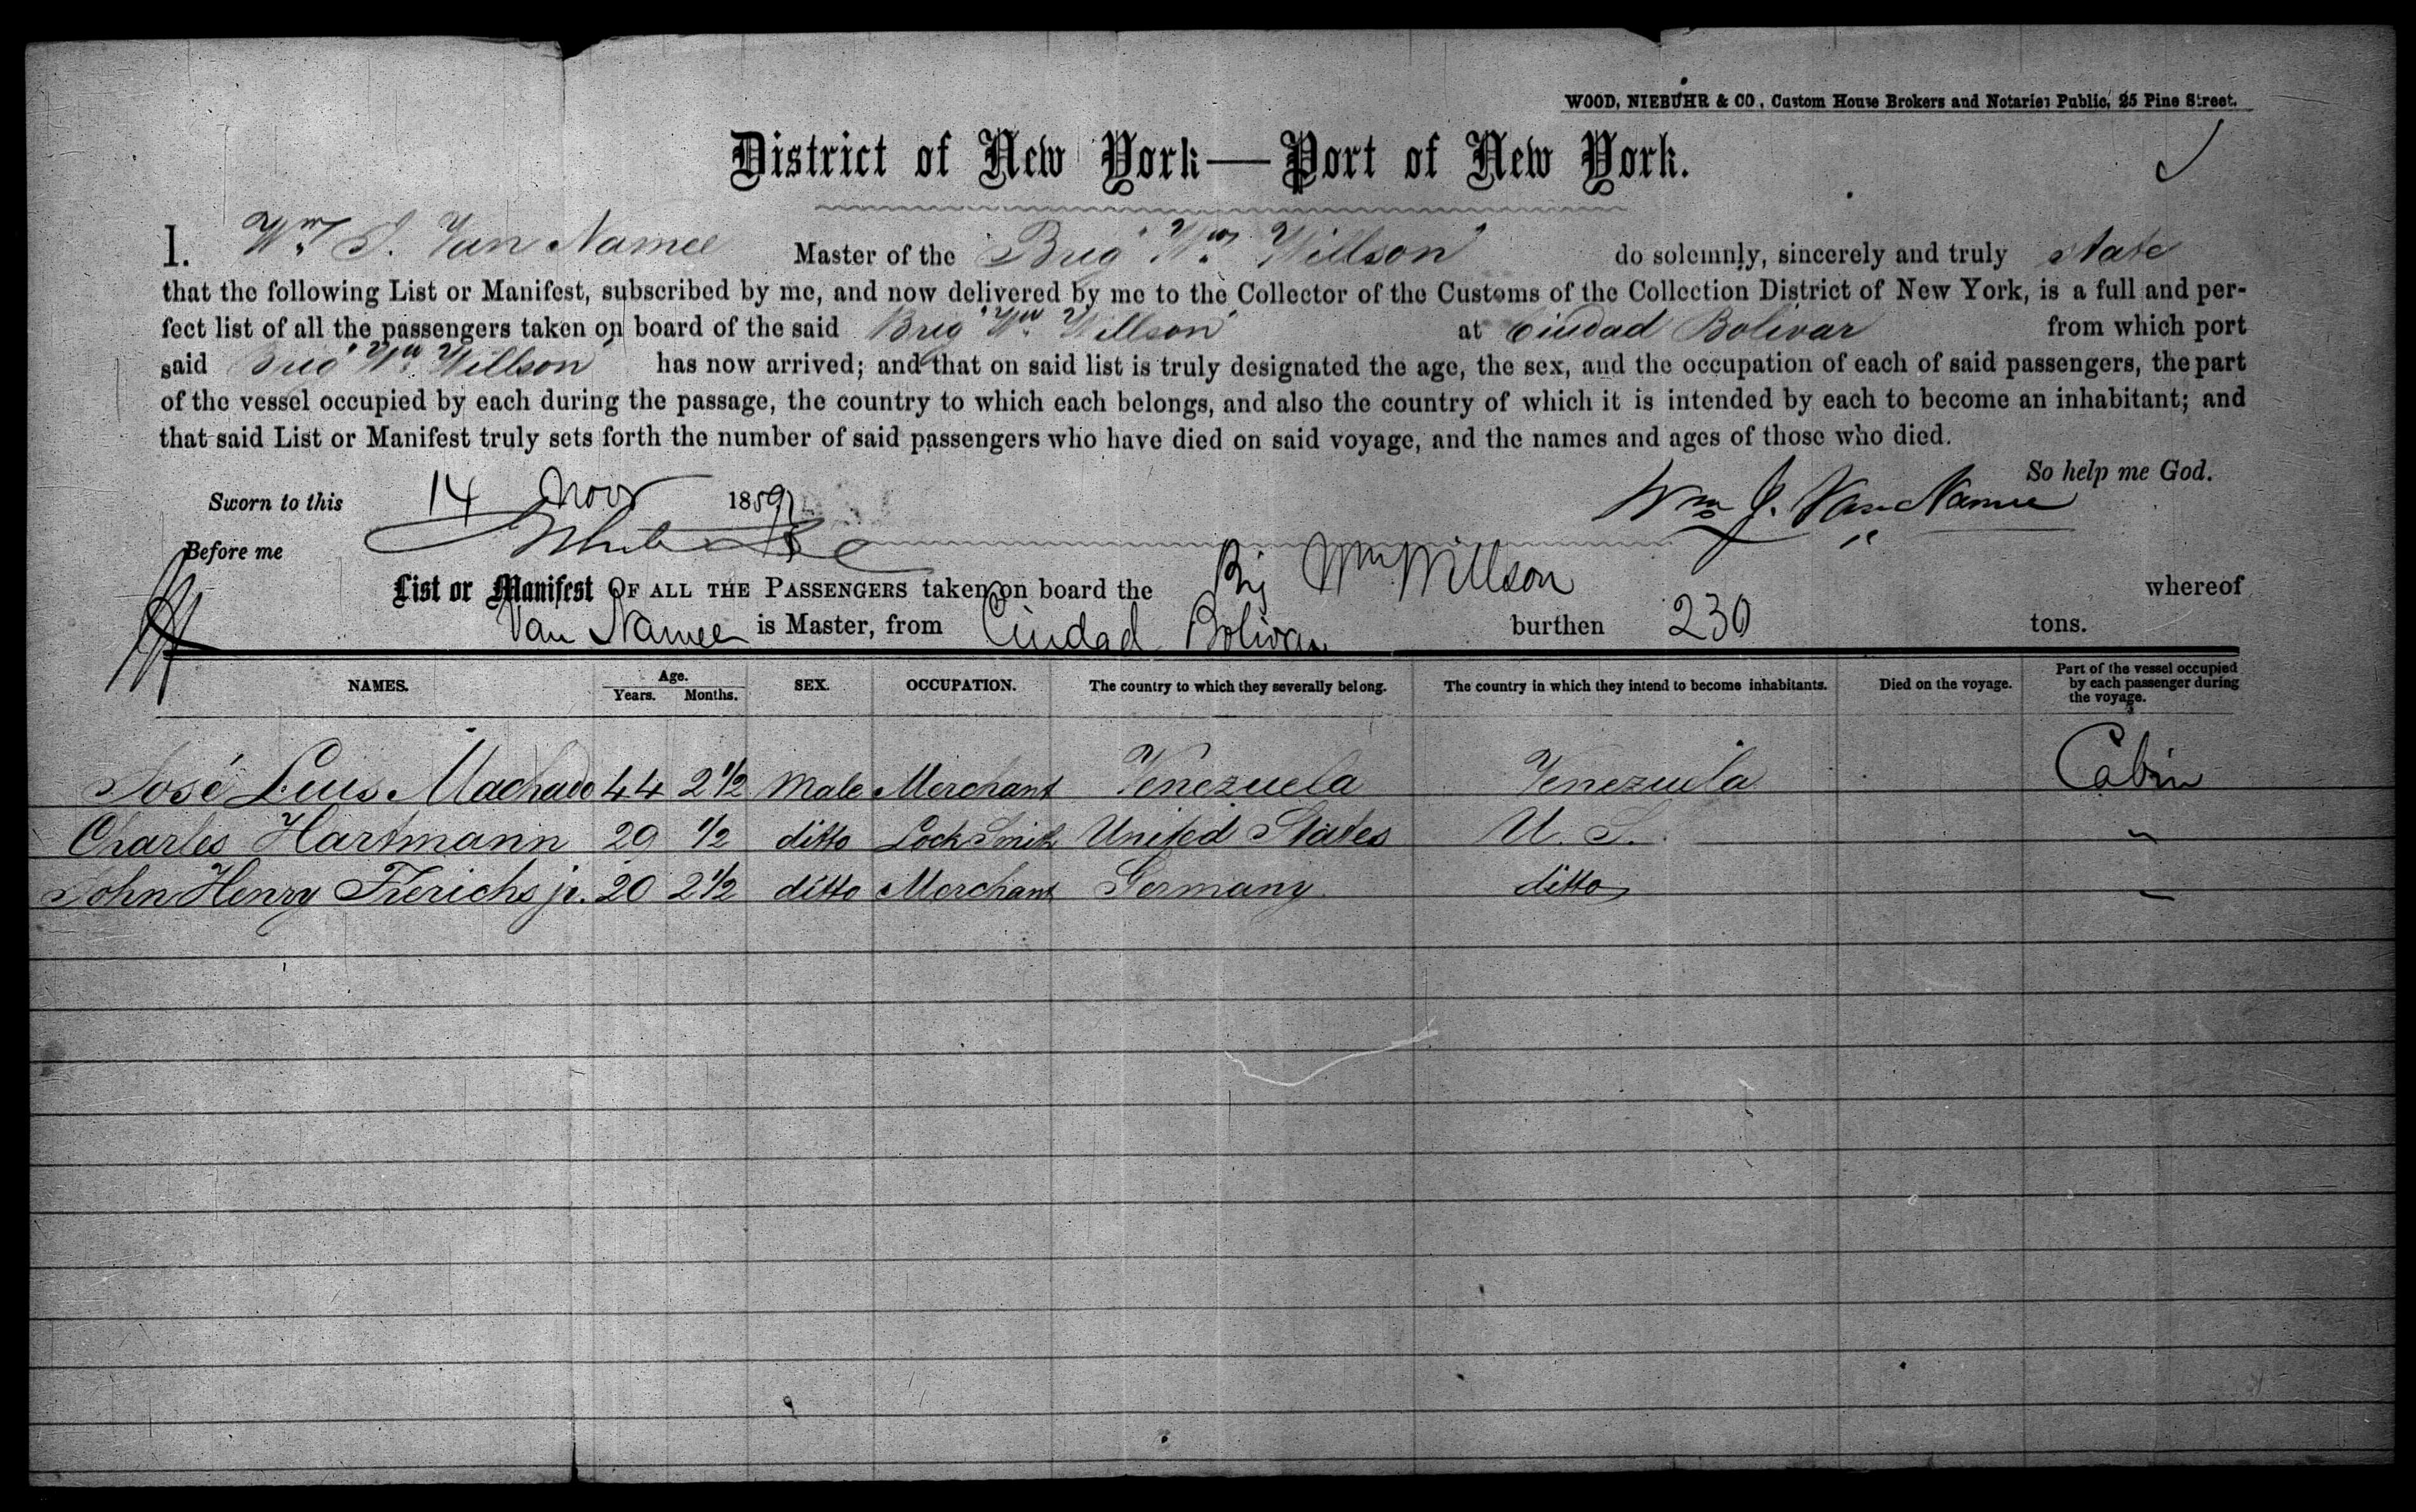 WOOD, NIEBUHR & CO., Custom House Brokers and Notaries Public, 25 Pine Street.
District of New York—Port of New York.
I. Wm J. Van Namee Master of the Brig "Wm Willson" do solemnly, sincerely and truly state
that the following List or Manifest, subscribed by me, and now delivered by me to the Collector of the Customs of the Collection District of New York, is a full and per-
fect list of all the passengers taken on board of the said Brig "Wm Willson" at Ciudad Bolivar from which port
said Brig "Wm Willson" has now arrived; and that on said list is truly designated the age, the sex, and the occupation of each of said passengers, the part
of the vessel occupied by each during the passage, the country to which each belongs, and also the country of which it is intended by each to become an inhabitant; and
that said List or Manifest truly sets forth the number of said passengers who have died on said voyage, and the names and ages of those who died.
So help me God.
Sworn to this 14 Nov 1859 Wm J. Van Namee
Before me
List or Manifest OF ALL THE PASSENGERS taken on board the Brig Wm Willson whereof
Van Namee is Master, from Ciudad Bolivar burthen 230 tons.
NAMES. Age. Years. Months. SEX. OCCUPATION. The country to which they severally belong. The country in which they intend to become inhabitants. Died on the voyage. Part of the vessel occupied by each passenger during the voyage.
José Luis Machado 44 2 1/2 Male Merchant Venezuela Venezuela Cabin
Charles Hartmann 29 1/2 ditto Lock Smith United States U. S. "
John Henry Frerichs jr. 20 2 1/2 ditto Merchant Germany ditto "